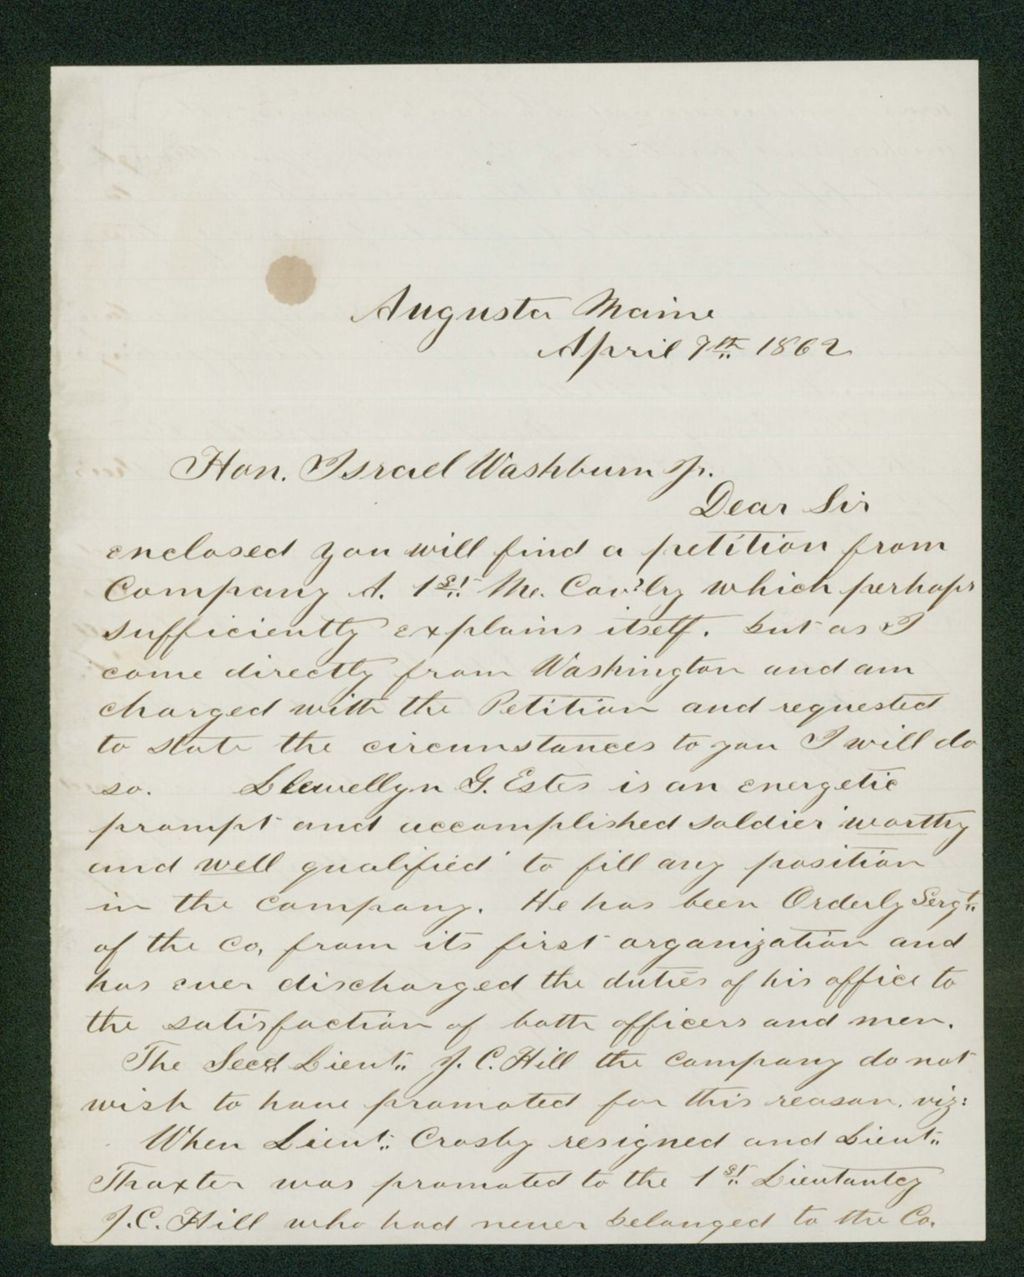 Augusta Maine
April 9th 1862
Hon. Israel Washburn Jr.
Dear Sir
enclosed you will find a petition from
Company A. 1st Me. Cavlry which perhaps
sufficiently explains itself. but as I
come directly from Washington and am
charged with the Petition and requested
to state the circumstances to you I will do
so. Llewellyn G. Estes is an energetic
prompt and accomplished soldier worthy
and well qualified to fill any position
in the company. He has been Orderly Sergt.
of the Co, from its first organization and
has ever discharged the duties of his office to
the satisfaction of both officers and men.
The Secd Lieut. J. C. Hill the company do not
wish to have promoted for this reason. viz:
When Lieut. Crosby resigned and Lieut.
Thaxter was promoted to the 1st Lieutantcy
J. C. Hill who had never belonged to the Co.